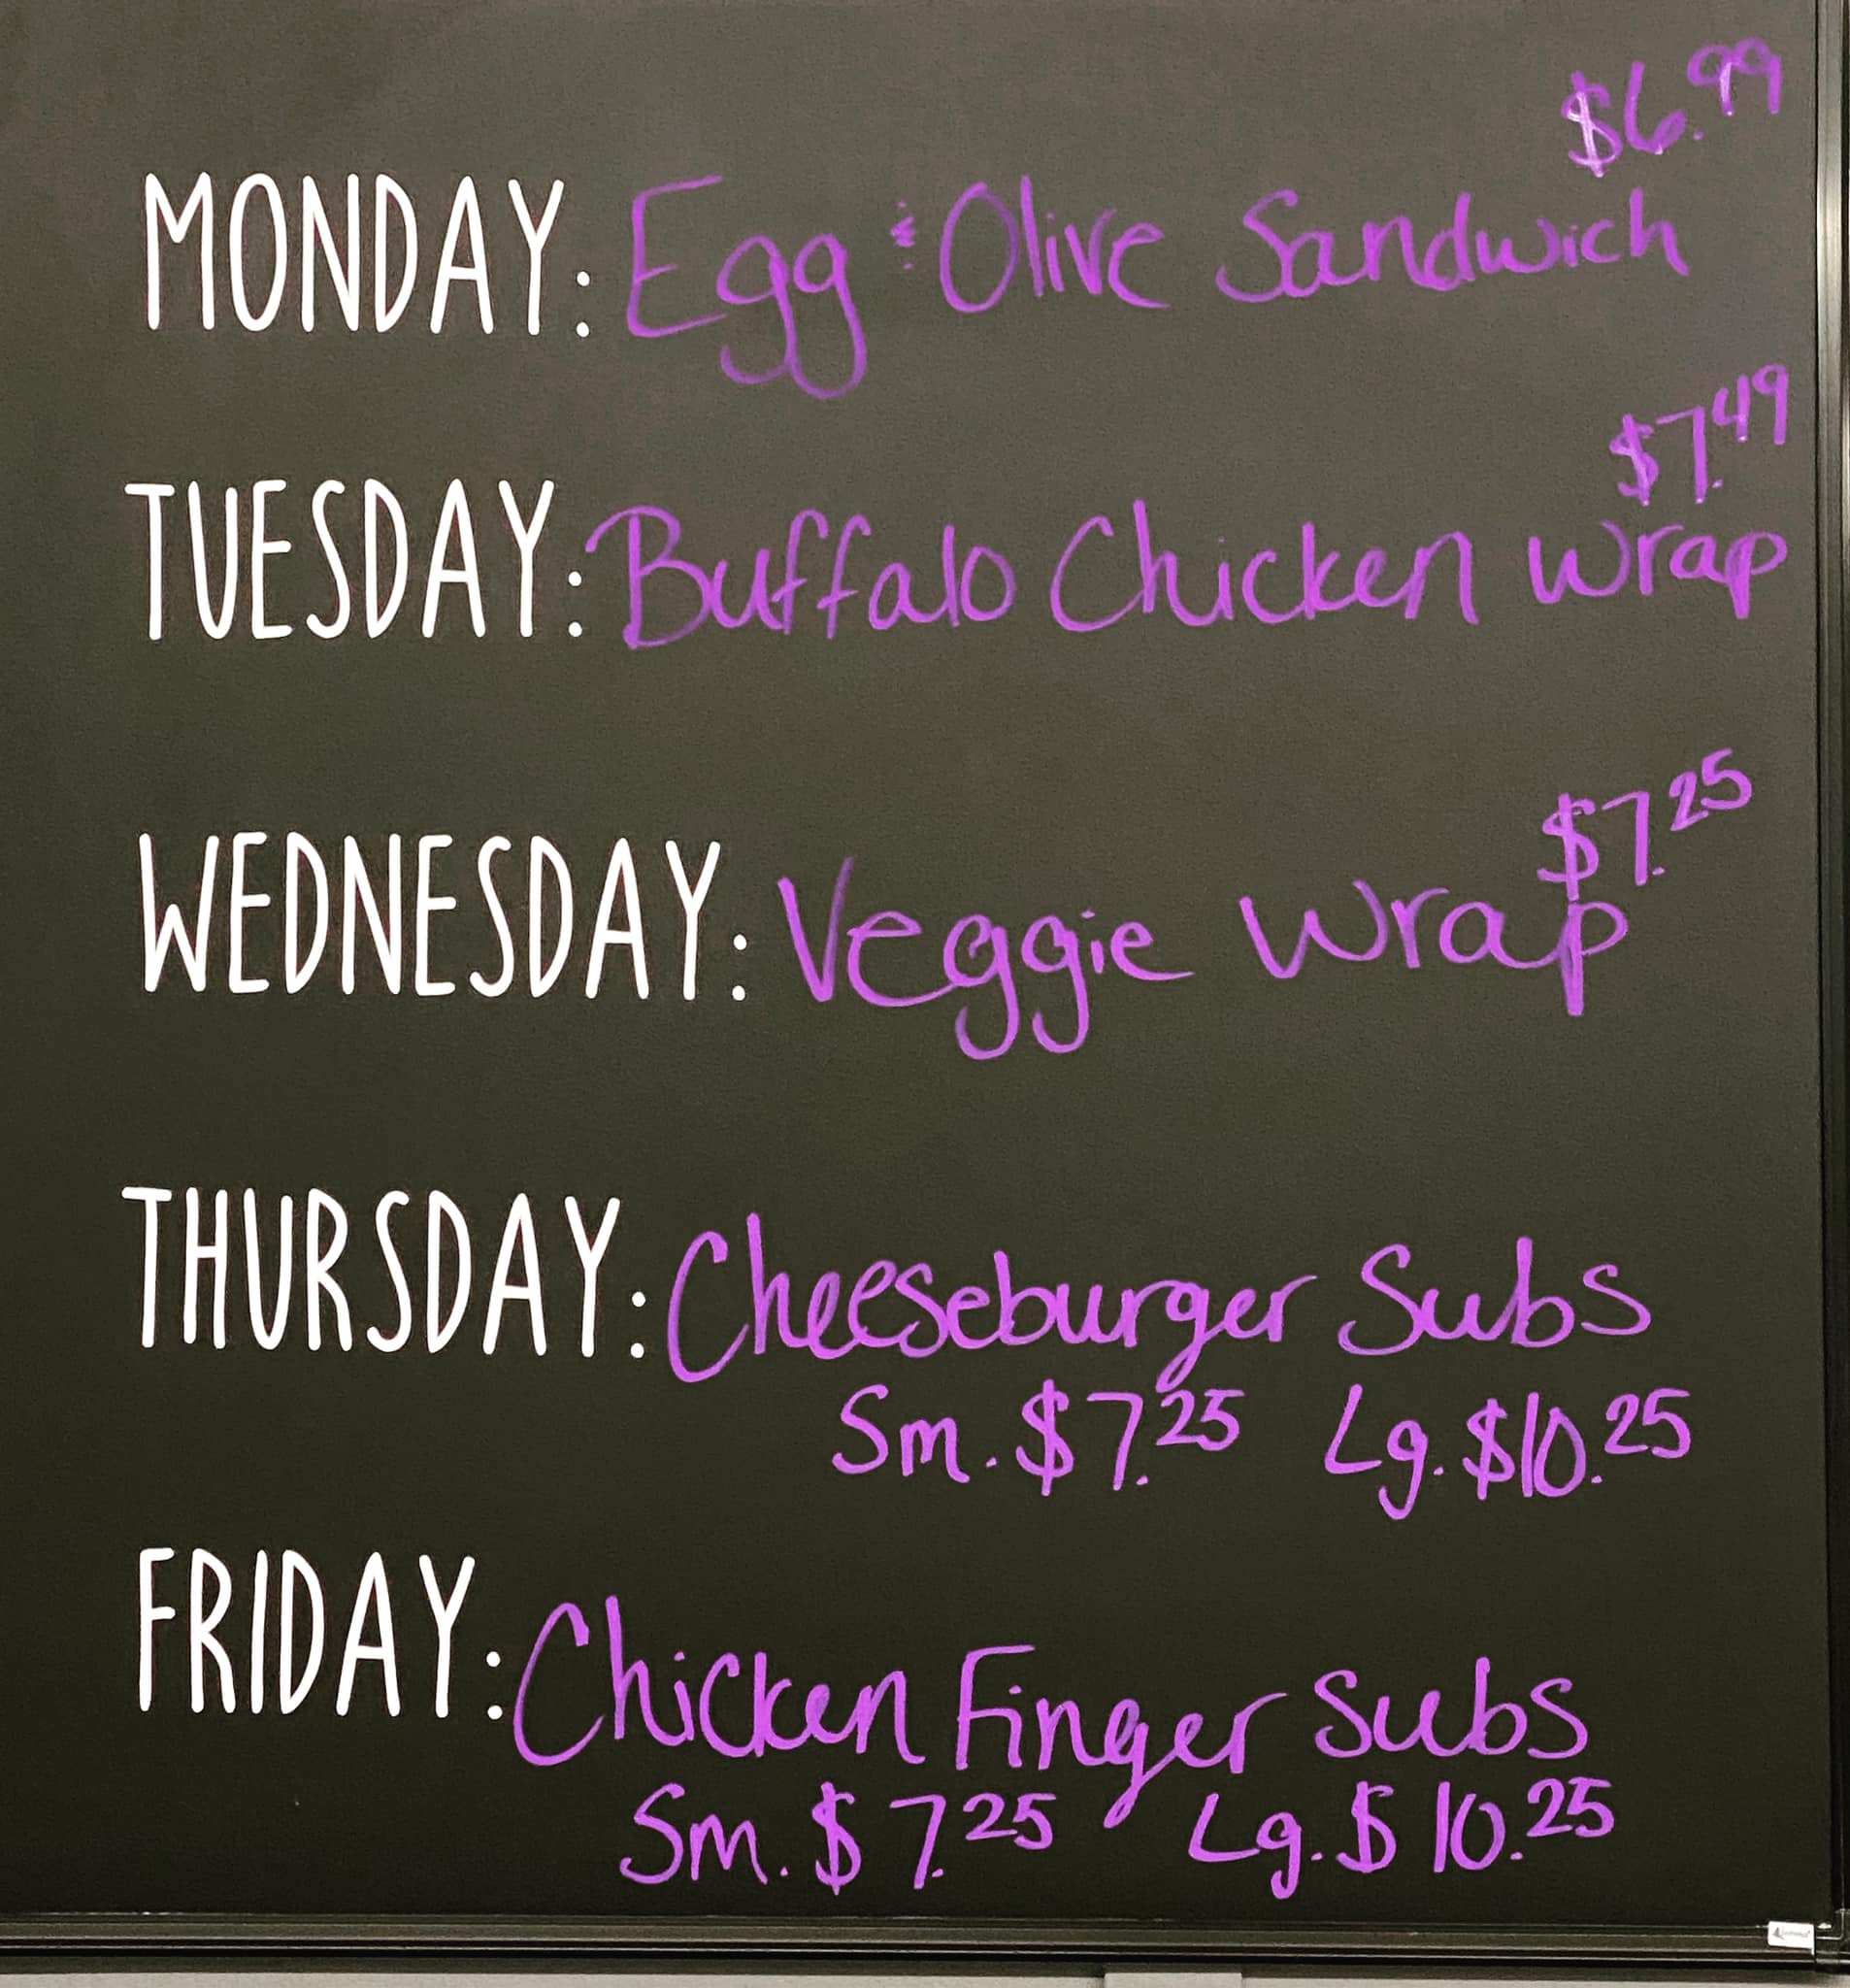 $6.99
MONDAY: Egg & Olive Sandwich
$7.49
TUESDAY: Buffalo Chicken Wrap
$7.25
WEDNESDAY: Veggie Wrap
THURSDAY: Cheeseburger Subs
Sm. $7.25 Lg. $10.25
FRIDAY: Chicken Finger Subs
Sm. $7.25 Lg. $10.25